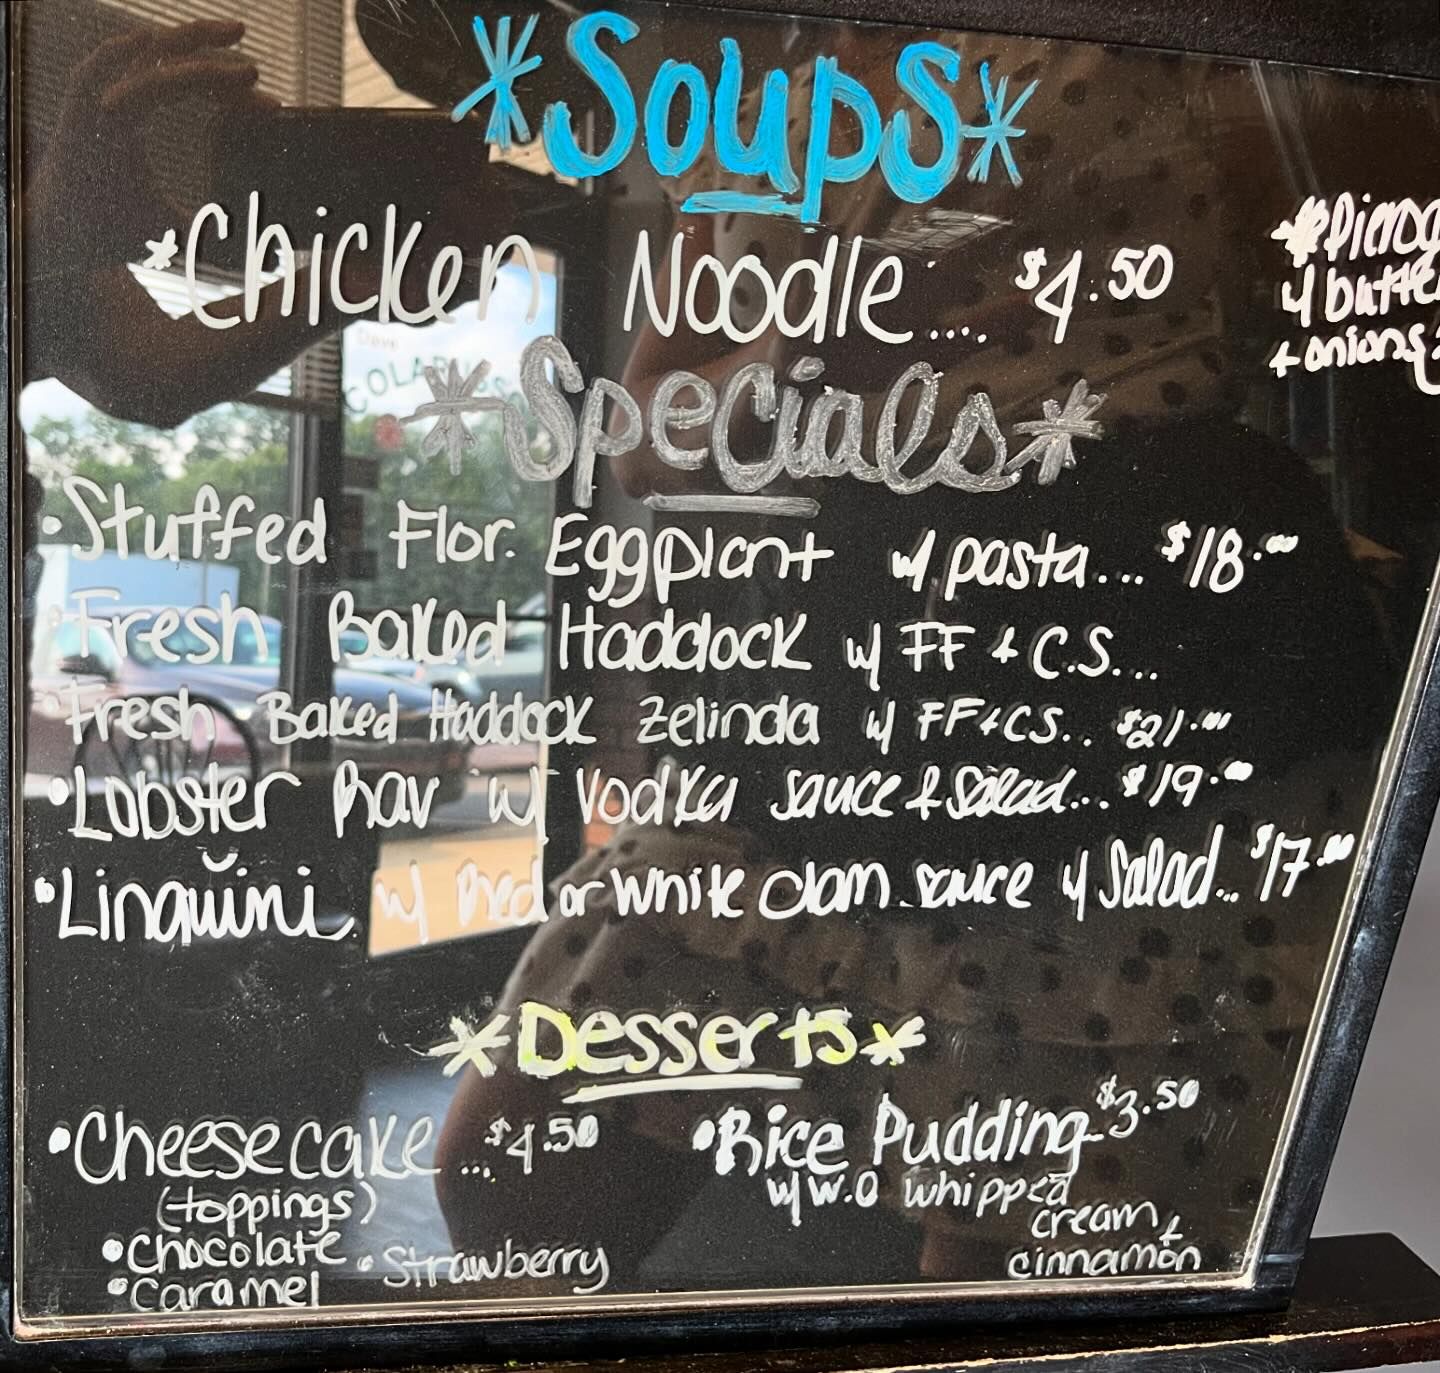 *Soups*
*Chicken Noodle.... $4.50
*Pierog
w/ butte
+ onions
*Specials*
•Stuffed Flor. Eggplant w/ pasta... $18.00
•Fresh Baked Haddock w/ FF + C.S....
•Fresh Baked Haddock Zelinda w/ FF+CS.. $21.00
•Lobster Rav w/ Vodka sauce + Salad... $19.00
•Linguini w/ Red or White clam sauce w/ Salad.. $17.00
*Desserts*
•Cheesecake ... $4.50
(toppings)
•Chocolate •Strawberry
•Caramel
•Rice Pudding $3.50
w/ W.O whipped
cream +
cinnamon